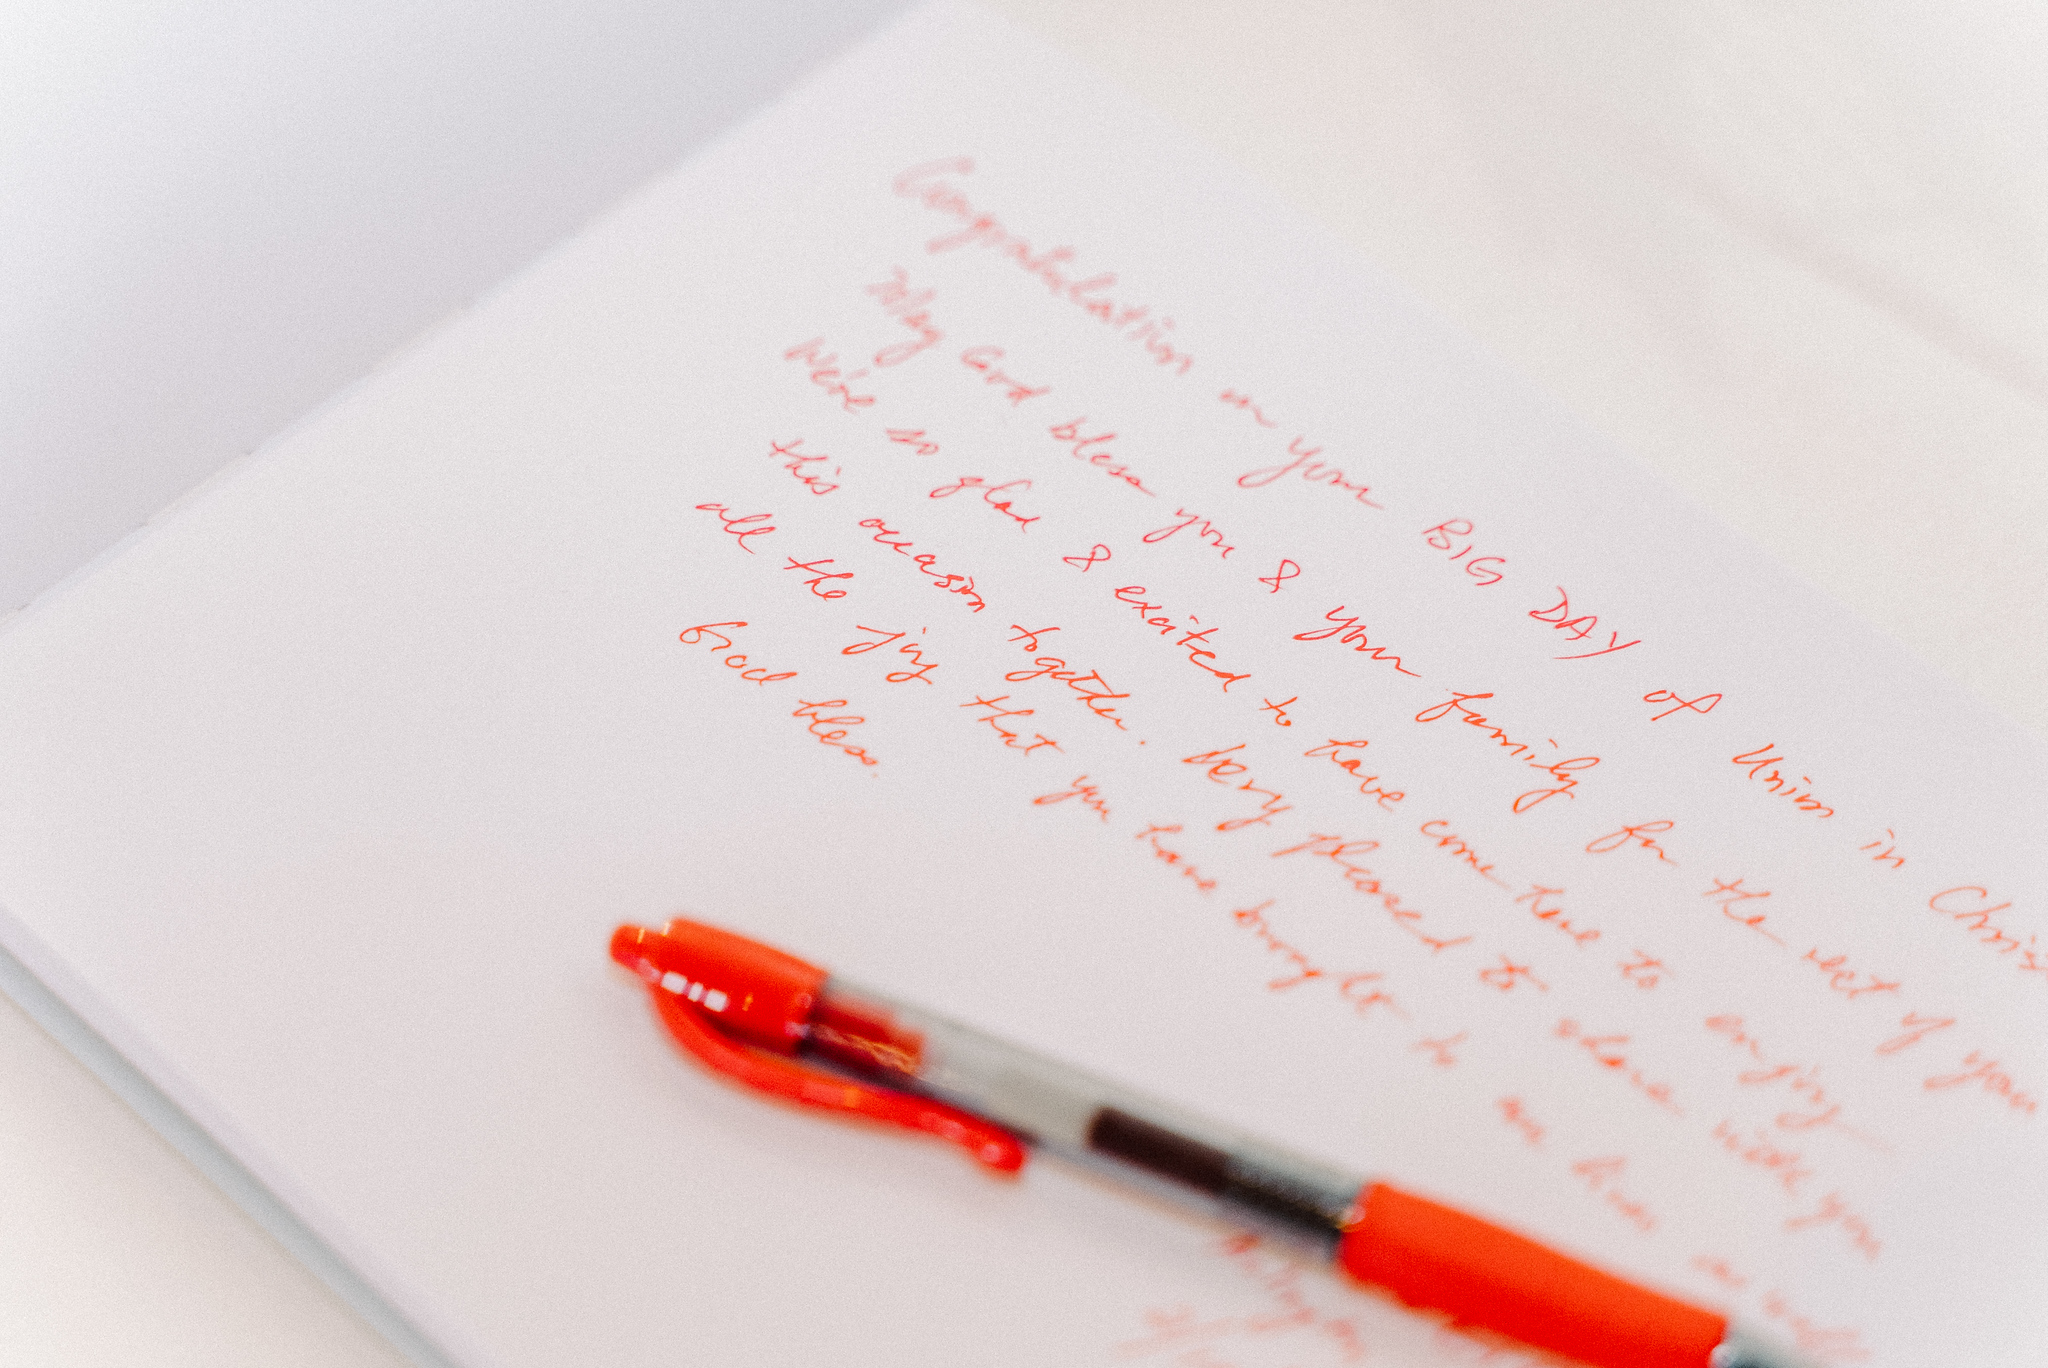 Congratulation on your BIG DAY of Union in Chris
May God bless you & your family for the rest of your
We're so glad & excited to have come here to enjoy
this occasion together. Very pleased to share with you
all the joy that you have brought to our lives as well
God bless.